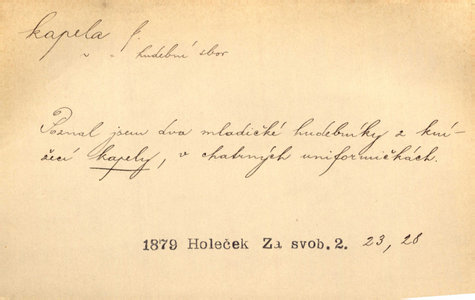 kapela f.
" " hudební sbor
Poznal jsem dva mladičké hudebníky z kní-
žecí kapely, v chatrných uniformičkách.
1879 Holeček Za svob. 2. 23, 28